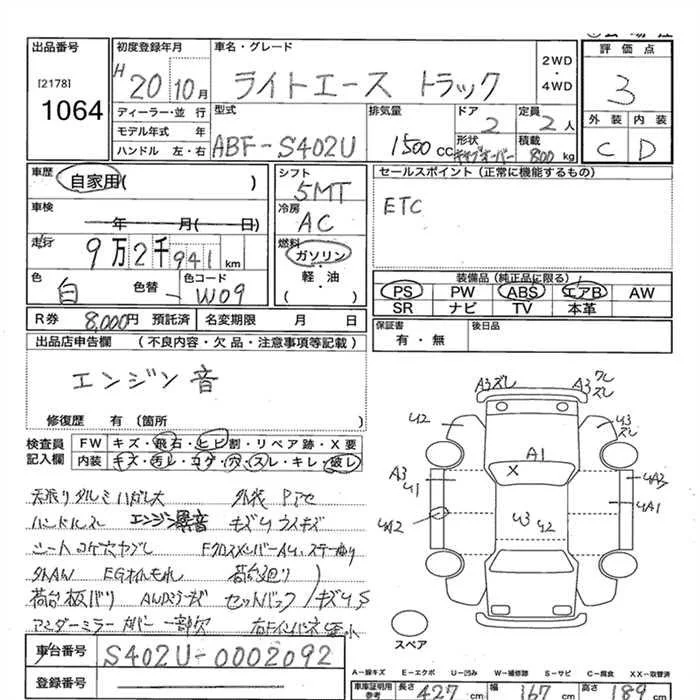 出品番号
[2178]
1064
初度登録年月
H 20 10月
車名・グレード
ライトエース トラック
2WD
・
4WD
評価点
3
外装 内装
C D
ディーラー・並行
モデル年式 年
ハンドル 左・右
型式
ABF-S402U
排気量
1500cc
ドア
2
形状
キャブオーバー
定員
2人
積載
800kg
車歴
自家用( )
車検
年 月( 日)
走行
9万2千941km
色
白
色替
カラーコード
W09
シフト
5MT
冷房
AC
燃料
ガソリン
軽・油
( )
セールスポイント(正常に機能するもの)
ETC
装備品(純正品に限る)
PS PW ABS エアB AW
SR ナビ TV 本革
R券 8,000円 預託済 名変期限 月 日
保証書
有・無
後日品
出品店申告欄 (不良内容・欠品・注意事項等記載)
エンジン音
修復歴 有(箇所 )
検査員
記入欄
FW キズ・飛石・ヒビ割・リペア跡・X要
内装 キズ・汚レ・コゲ・穴・スレ・キレ・破レ
天張りタルミハガレ大 外装
ハンドルスレ エンジン異音 キズUウスキズ
シートコゲ穴ヤブレ
外AW EGオイルモレ 荷台廻り
荷台板バリ セットバック キズU、S
アンダーミラーカバー一部欠
A3ズレ
A3ワレ
ズレ
U2
U3
ズレ
A1
X
A3
U1
UA3
UA1
UA2
U3 U2
スペア
車台番号 S402U-0002092
登録番号
A-線キズ E-エクボ U-凹み W-補修跡 S-サビ C-腐食 XX-交換済
車庫証明用
参考
長さ 427cm 幅 167cm 高さ 189cm